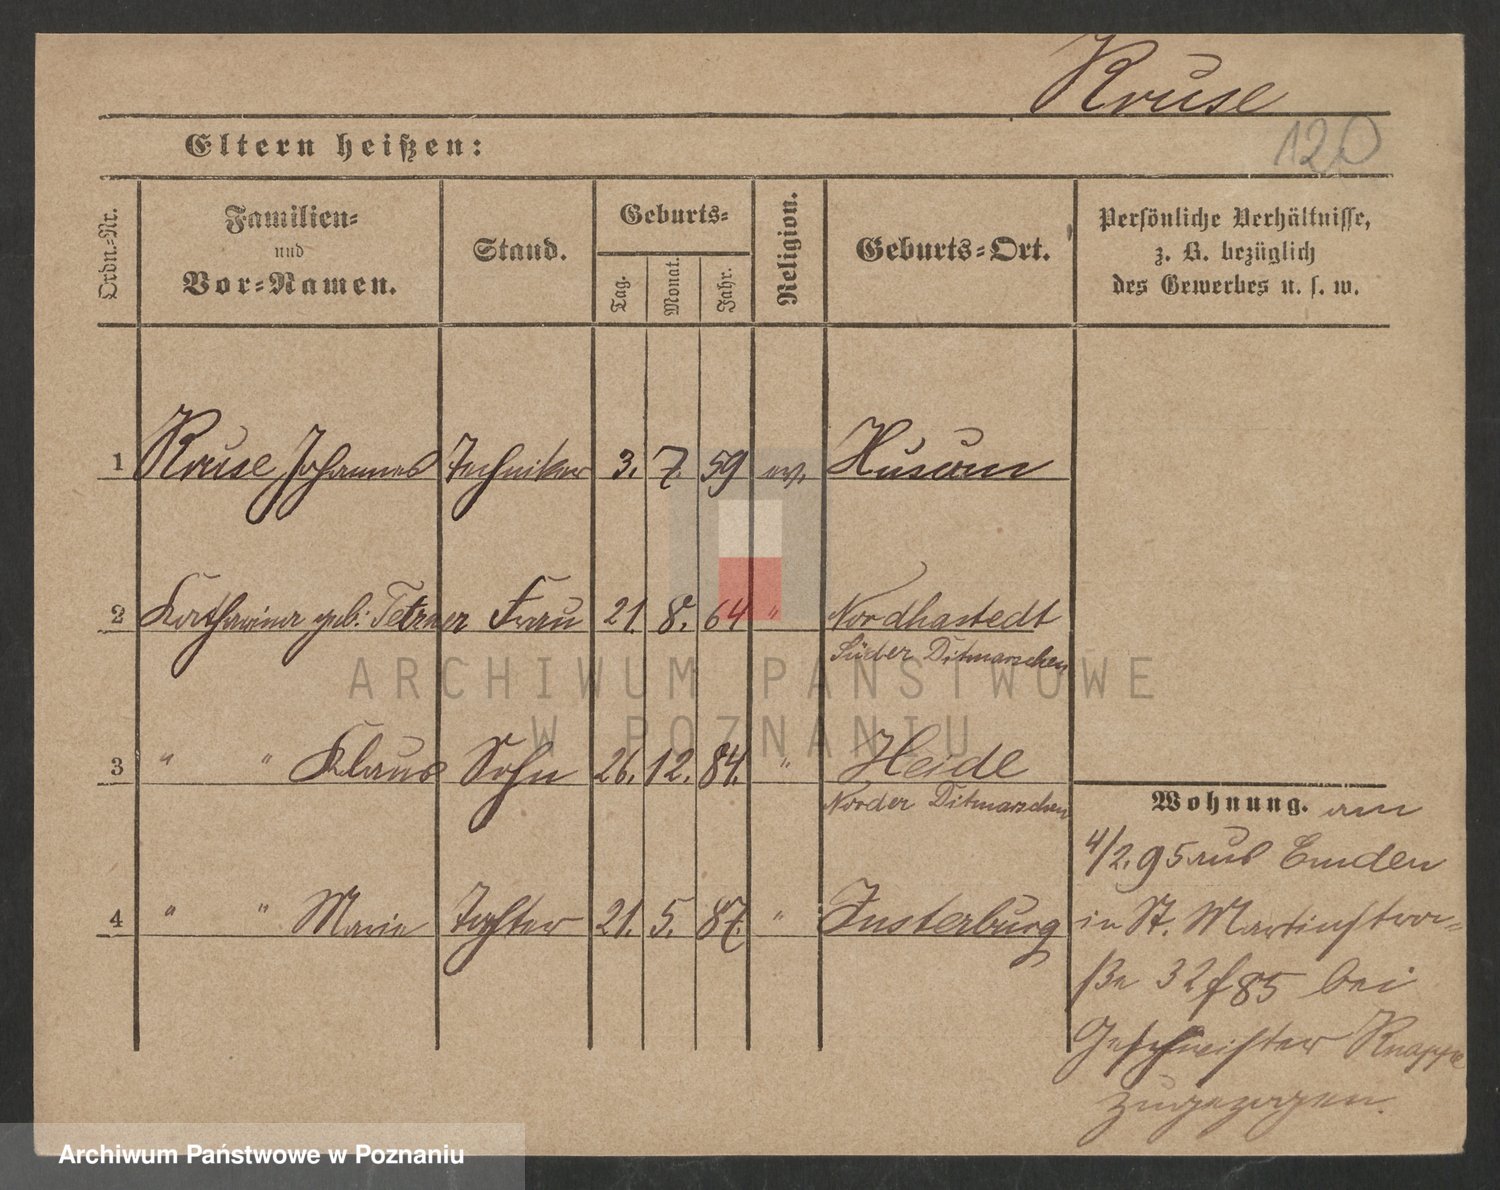 Kruse
120
Eltern heißen:
Ordn.-Nr.
Familien-
und
Vor-Namen.
Stand.
Geburts-
Tag.
Monat.
Jahr.
Religion.
Geburts-Ort.
Persönliche Verhältnisse,
z. B. bezüglich
des Gewerbes u. s. w.
1 Kruse Johannes Techniker 3. 7. 59 ev. Husum
2 Katharina geb: Tetzner Frau 21. 8. 64 " Nordhastedt
Süder Ditmarschen
ARCHIWUM PAŃSTWOWE
W POZNANIU
3 " " Klaus Sohn 26. 12. 84. " Heide
Norder Ditmarschen
4 " " Marie Tochter 21. 5. 87. " Insterburg
Wohnung. am
4/2. 95 aus Emden
in St. Martinstra-
ße 32 f 85 bei
Geschwister Knappe
zugezogen.
Archiwum Państwowe w Poznaniu